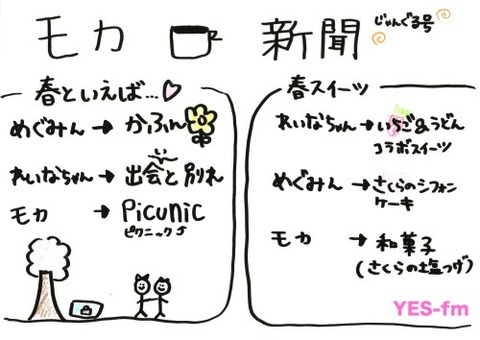 モカ 新聞 じゃんぐる号
春といえば…
めぐみん → かふん
れいなちゃん → 出会と別れ
モカ → Picunic
ピクニック♪
春スイーツ
れいなちゃん → いちご&うどん
コラボスイーツ
めぐみん → さくらのシフォン
ケーキ
モカ → 和菓子
(さくらの塩づけ)
YES-fm